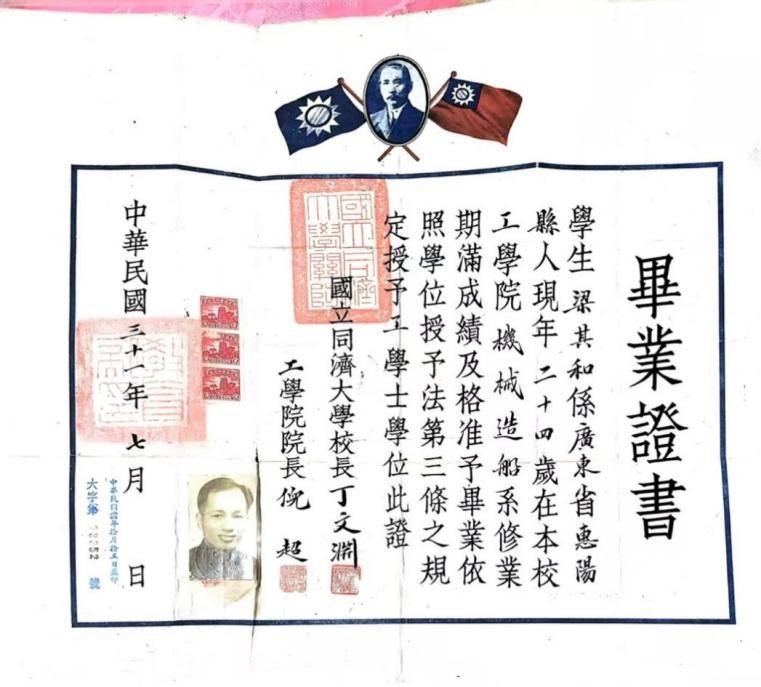 畢業證書
學生梁其和係廣東省惠陽
縣人現年二十四歲在本校
工學院機械造船系修業
期滿成績及格准予畢業依
照學位授予法第三條之規
定授予工學士學位此證
國立同濟
大學關防
國立同濟大學校長丁文淵
工學院院長倪超
中華民國三十一年七月 日
教育
部印
中華民國年拾月拾五日蓋印
大字第 號